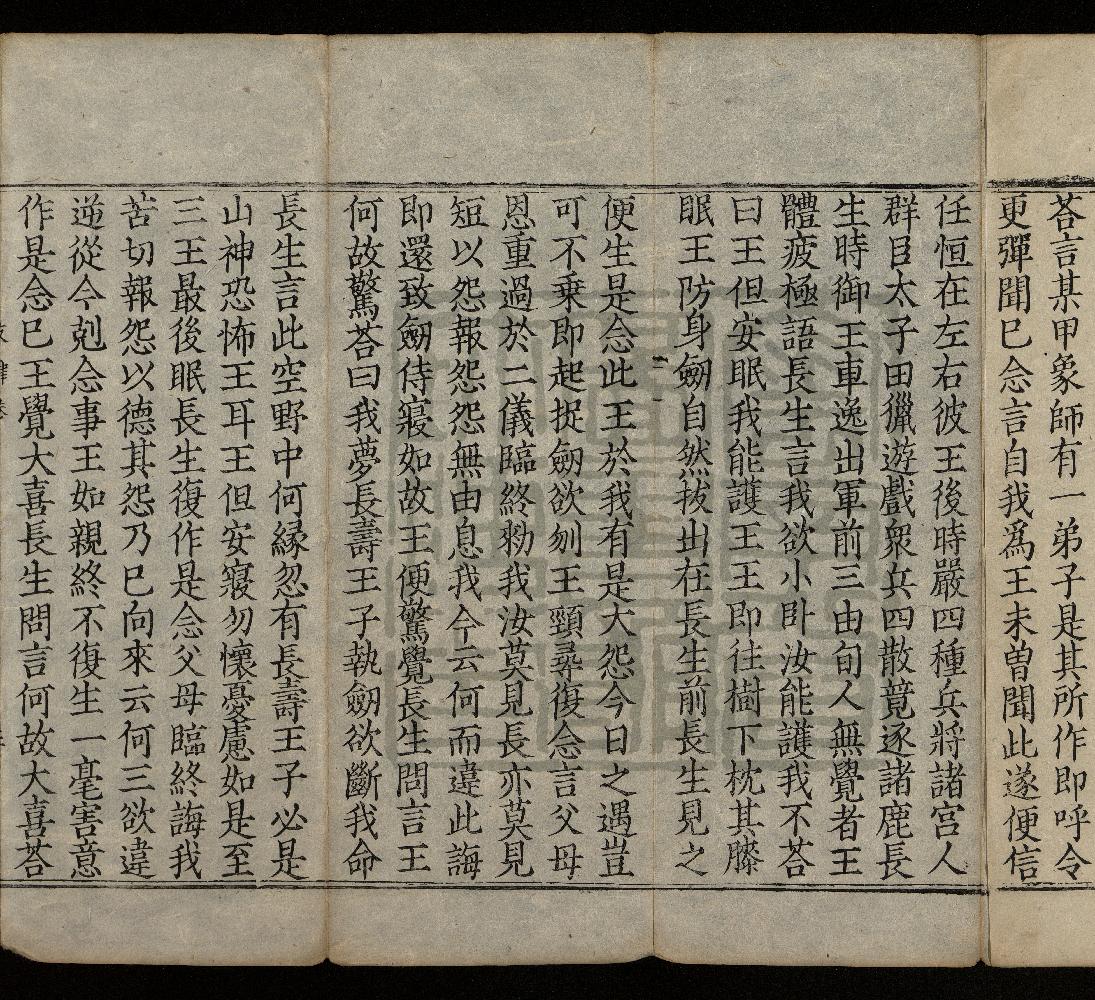 荅言某甲象師有一弟子是其所作即呼令
更彈聞巳念言自我爲王未曽聞此遂便信
任恒在左右彼王後時嚴四種兵將諸宮人
群臣太子田獵遊戲衆兵四散競逐諸鹿長
生時御王車逸出軍前三由旬人無覺者王
體疲極語長生言我欲小卧汝能護我不荅
曰王但安眠我能護王王即往樹下枕其膝
眠王防身劒自然拔出在長生前長生見之
便生是念此王於我有是大怨今日之遇豈
可不乗即起捉劒欲刎王頸尋復念言父母
恩重過於二儀臨終勑我汝莫見長亦莫見
短以怨報怨怨無由息我今云何而違此誨
即還致劒侍寢如故王便驚覺長生問言王
何故驚荅曰我夢長壽王子執劒欲斷我命
長生言此空野中何縁忽有長壽王子必是
山神恐怖王耳王但安寢勿懷憂慮如是至
三王最後眠長生復作是念父母臨終誨我
苦切報怨以德其怨乃巳向來云何三欲違
逆從今剋念事王如親終不復生一毫害意
作是念巳王覺大喜長生問言何故大喜荅